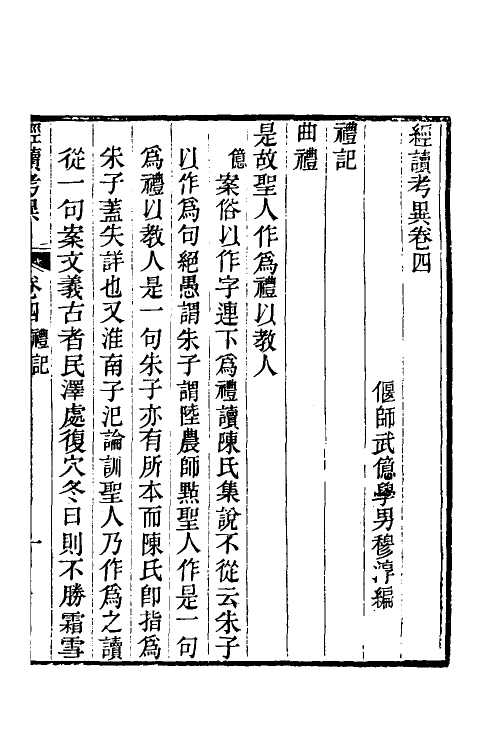 經讀考異卷四
偃師武億學男穆淳編
禮記
曲禮
是故聖人作爲禮以教人
億案俗以作字連下爲禮讀陳氏集說不從云朱子
以作爲句絕愚謂朱子謂陸農師點聖人作是一句
爲禮以教人是一句朱子亦有所本而陳氏卽指爲
朱子蓋失詳也又淮南子氾論訓聖人乃作爲之讀
從一句案文義古者民澤處復穴冬日則不勝霜雪
經讀考異 卷四禮記 一